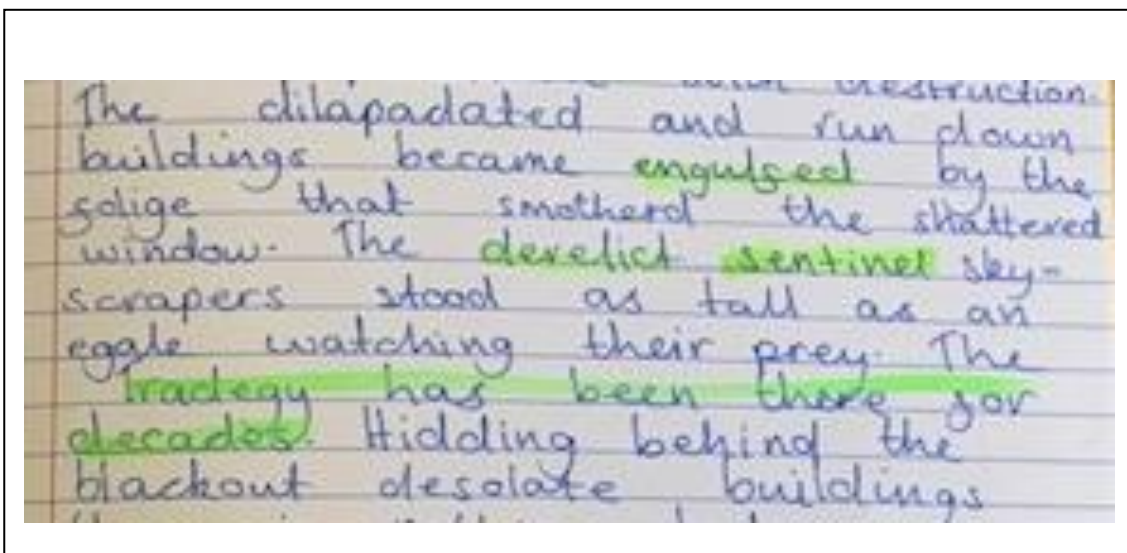 destruction.
The dilapadated and run down
buildings became engulfed by the
folige that smotherd the shattered
window. The derelict sentinel sky-
scrapers stood as tall as an
eggle watching their prey. The
tradegy has been there for
decades. Hidding behind the
blackout desolate buildings